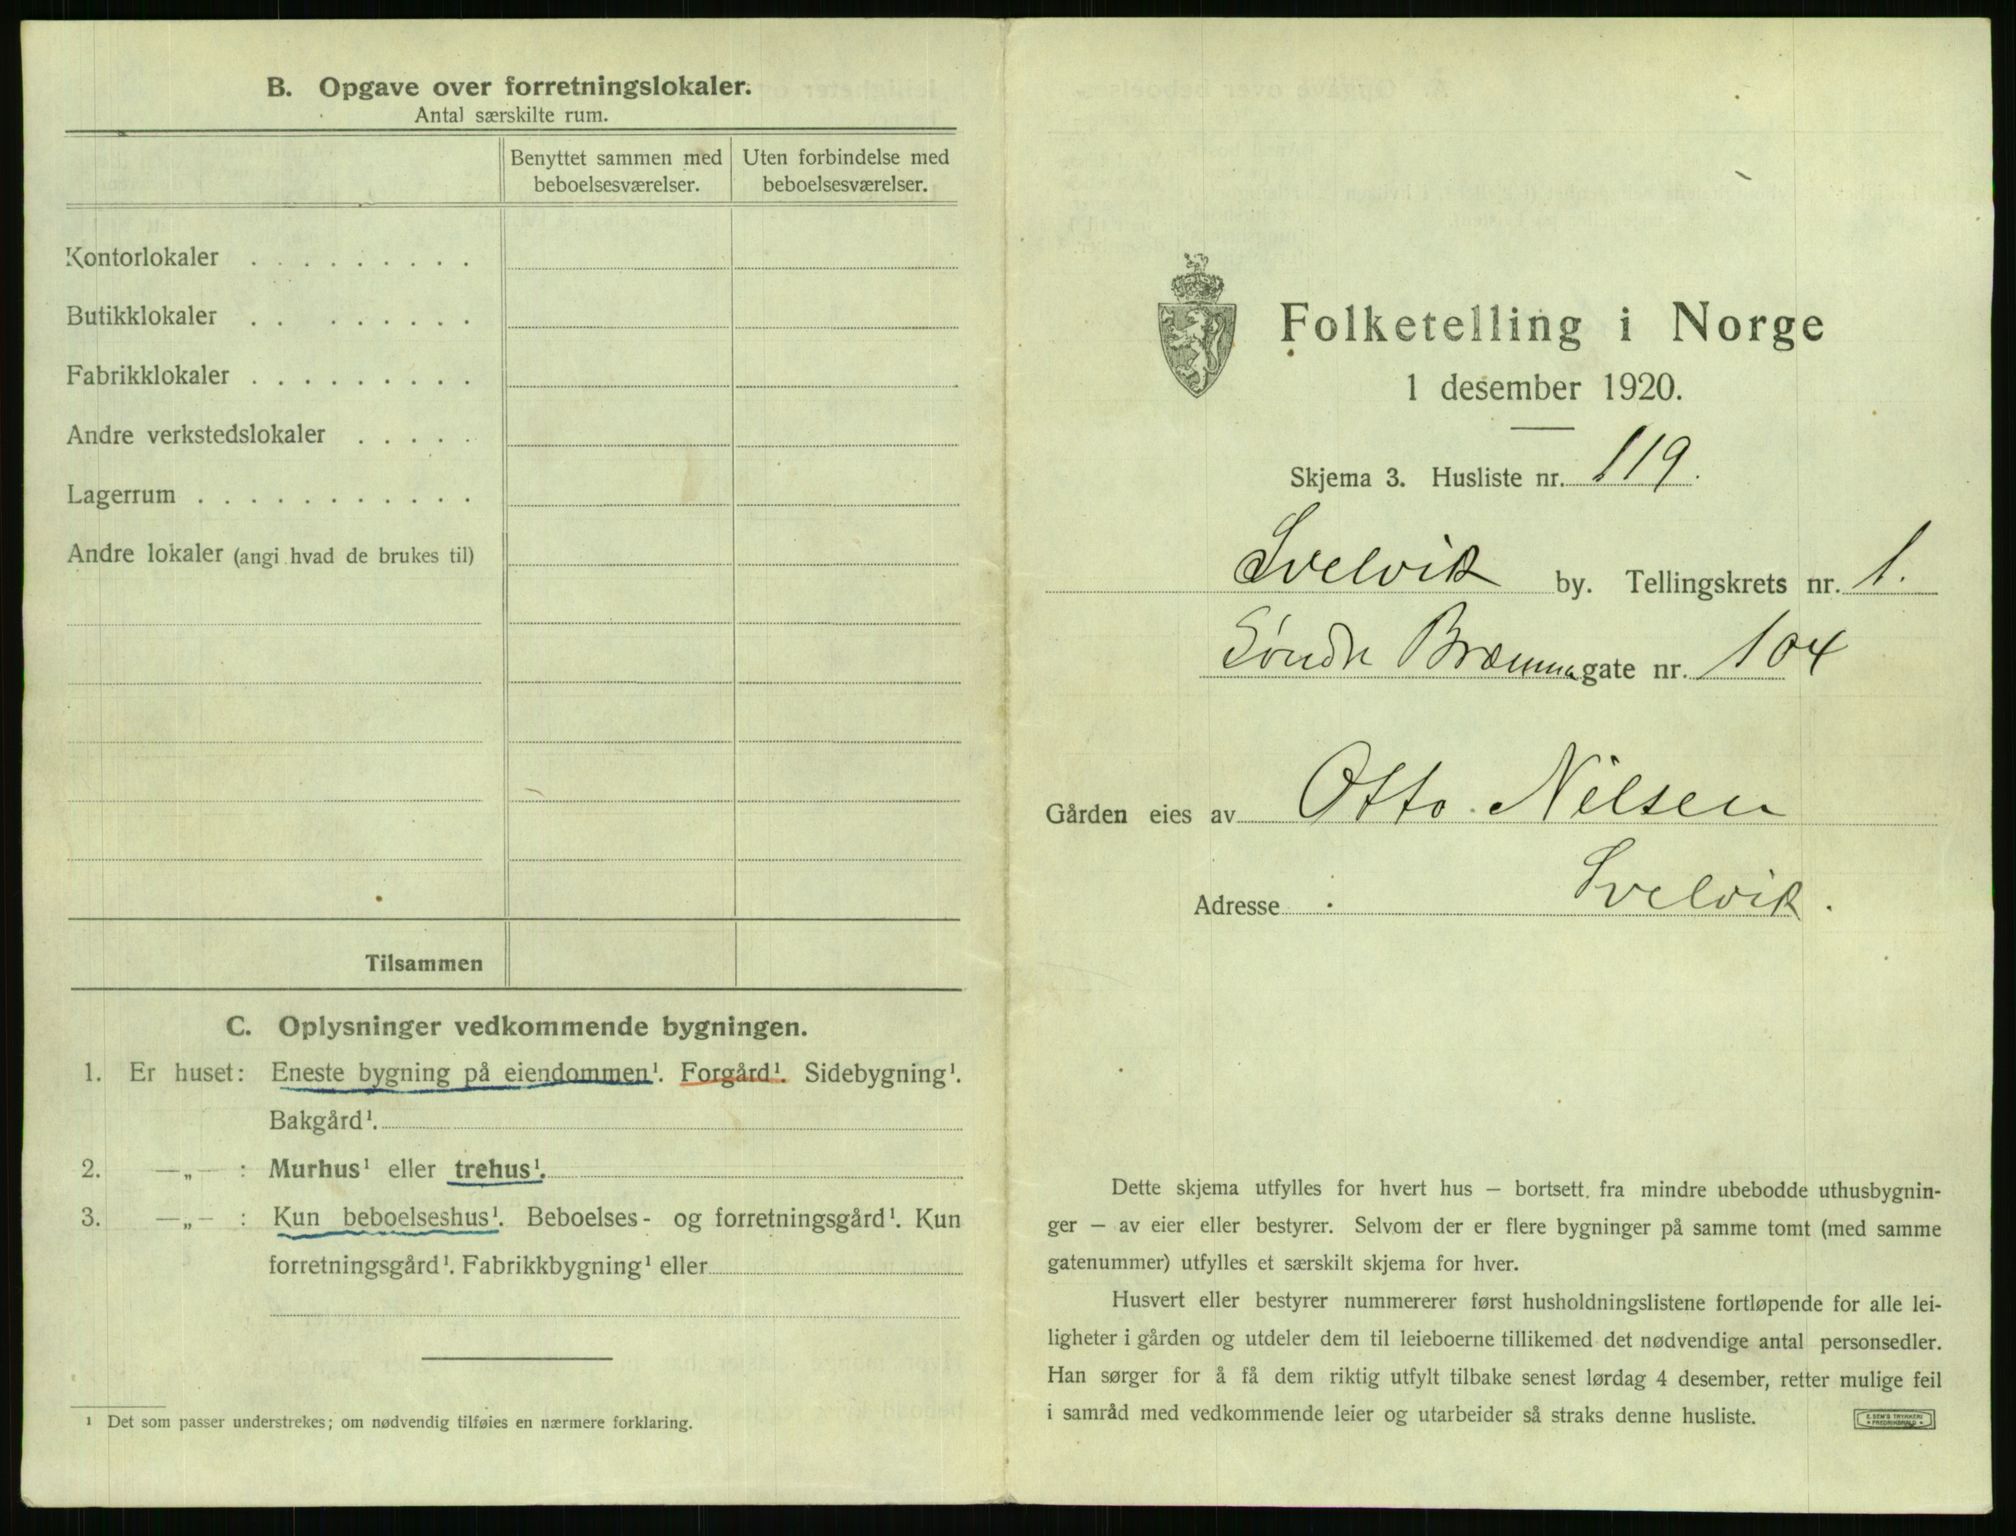 B. Opgave over forretningslokaler.
Antal særskilte rum.
Benyttet sammen med beboelsesværelser.
Uten forbindelse med beboelsesværelser.
Kontorlokaler . . . . . . . . .
Butikklokaler . . . . . . . .
Fabrikklokaler . . . . . . . . .
Andre verkstedslokaler . . . . .
Lagerrum . . . . . . . . . . .
Andre lokaler (angi hvad de brukes til)
Tilsammen
C. Oplysninger vedkommende bygningen.
1. Er huset: Eneste bygning på eiendommen¹. Forgård¹. Sidebygning¹.
Bakgård¹.
2. —„— : Murhus¹ eller trehus¹.
3. —„— : Kun beboelseshus¹. Beboelses- og forretningsgård¹. Kun
forretningsgård¹. Fabrikkbygning¹ eller
¹ Det som passer understrekes; om nødvendig tilføies en nærmere forklaring.
Folketelling i Norge
1 desember 1920.
Skjema 3. Husliste nr. 119.
Svelvik by. Tellingskrets nr. 1.
Søndre gate nr. 104
Gården eies av Otto Nilsen
Adresse Svelvik.
Dette skjema utfylles for hvert hus — bortsett fra mindre ubebodde uthusbygnin-
ger — av eier eller bestyrer. Selvom der er flere bygninger på samme tomt (med samme
gatenummer) utfylles et særskilt skjema for hver.
Husvert eller bestyrer nummererer først husholdningslistene fortløpende for alle lei-
ligheter i gården og utdeler dem til leieboerne tillikemed det nødvendige antal personsedler.
Han sørger for å få dem riktig utfylt tilbake senest lørdag 4 desember, retter mulige feil
i samråd med vedkommende leier og utarbeider så straks denne husliste.
E. SEM'S TRYKKERI
FREDRIKSHALD